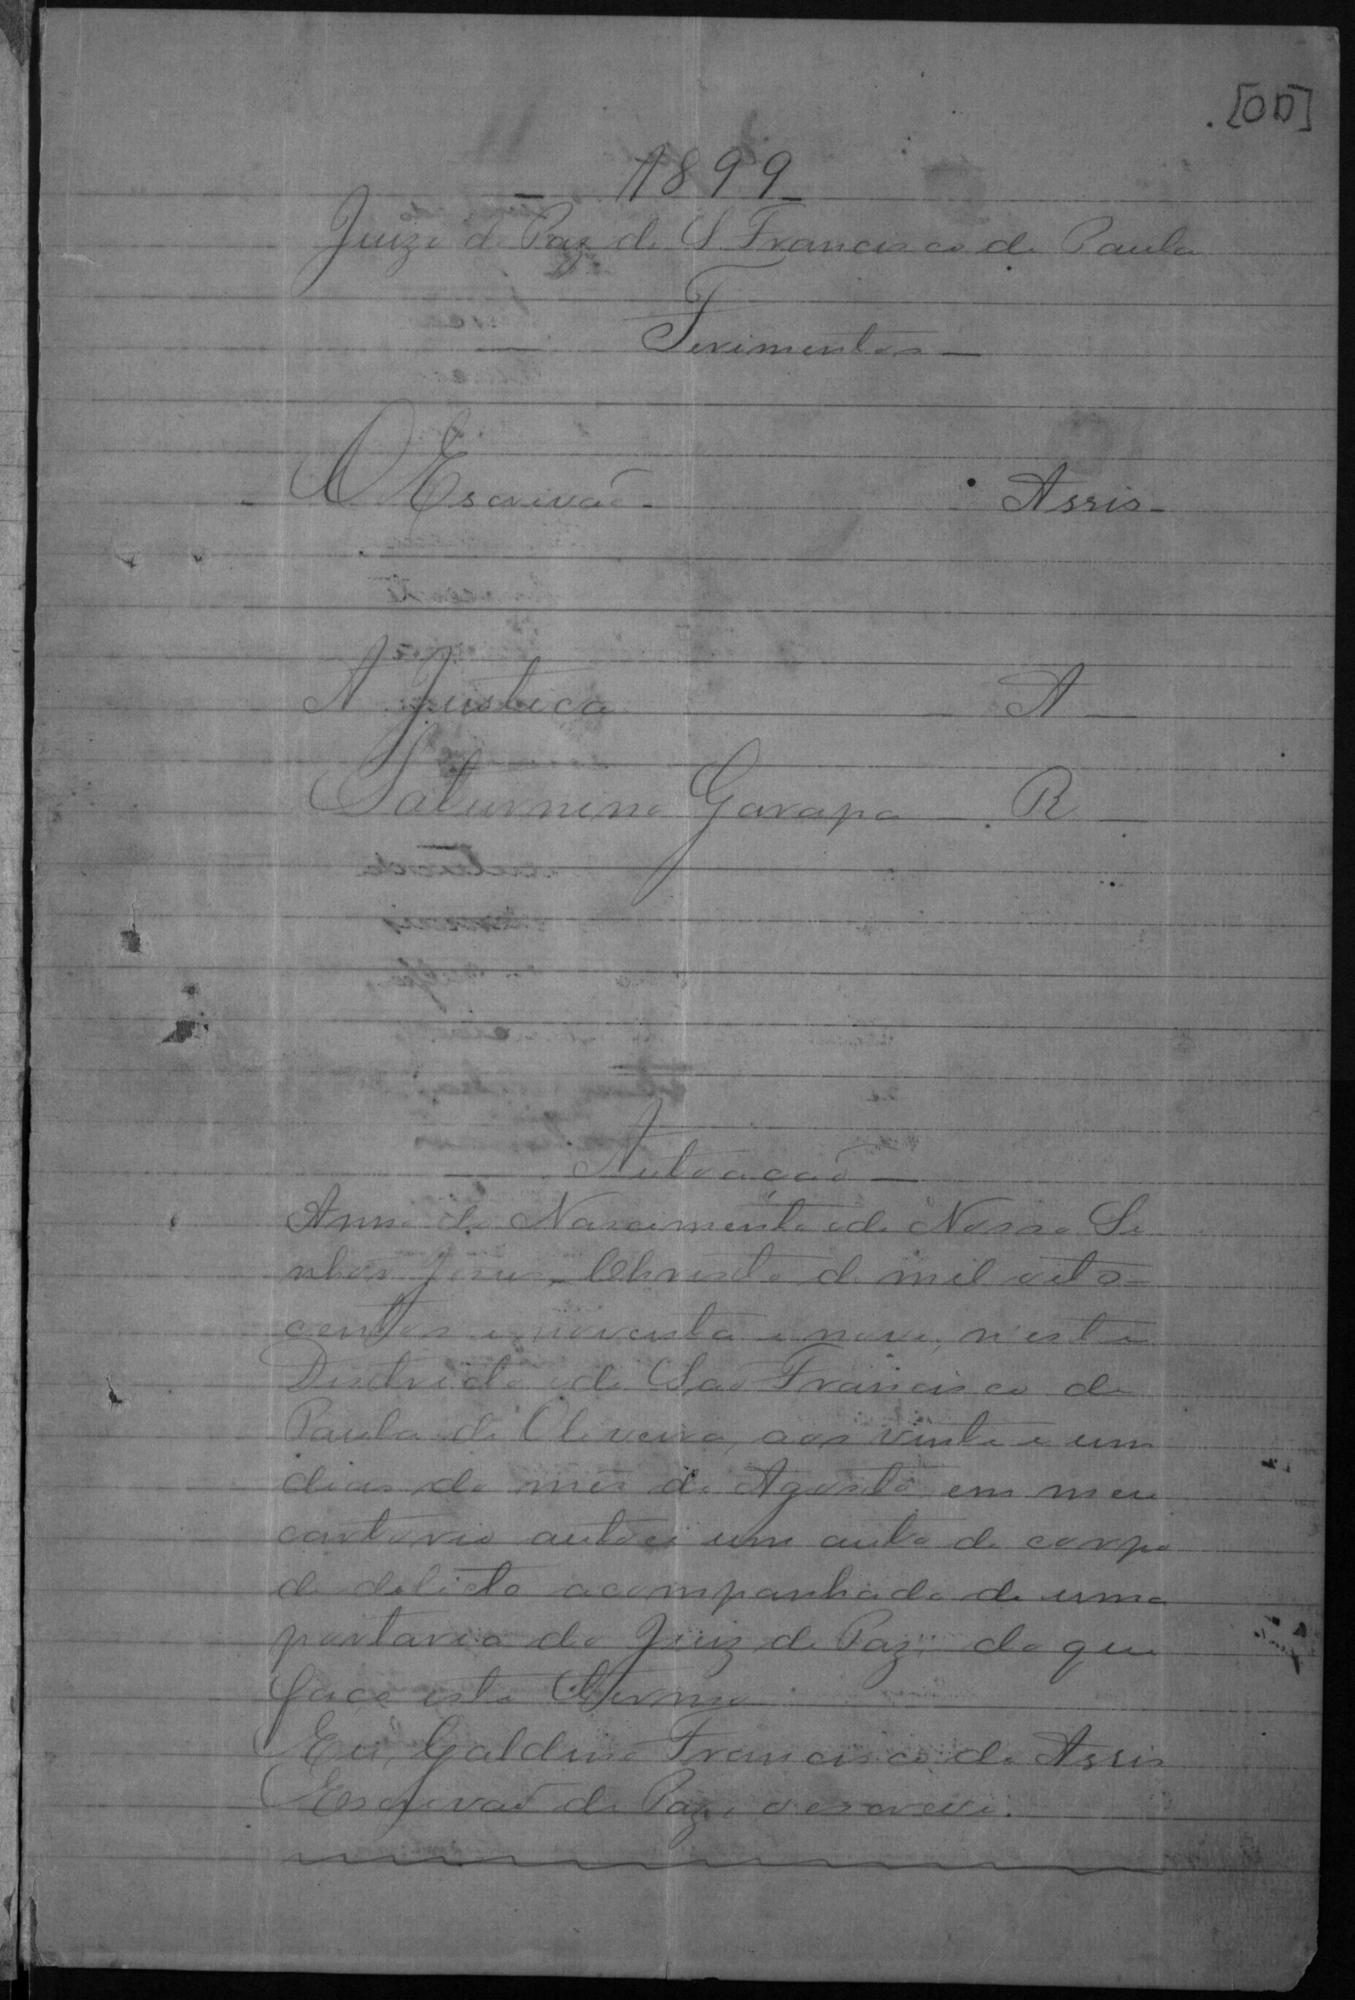 [OD]
1899
Juizo de Paz de S. Francisco de Paula
Ferimentos
O Escrivão Assis
A Justica A
Saturnino Garapa R
Autoação
Anno do Nascimento de Nosso Se
nhor Jesus Christo de mil oito
centos e noventa e nove, n'este
Districto de São Francisco de
Paula de Oliveira, aos vinte e um
dias do mes de Agosto em meu
cartorio autoei um auto de corpo
de delicto acompanhado de uma
portaria do Juiz de Paz, do que
faço este termo
Eu, Galdino Francisco de Assis
Escrivão de Paz, o escrevi.